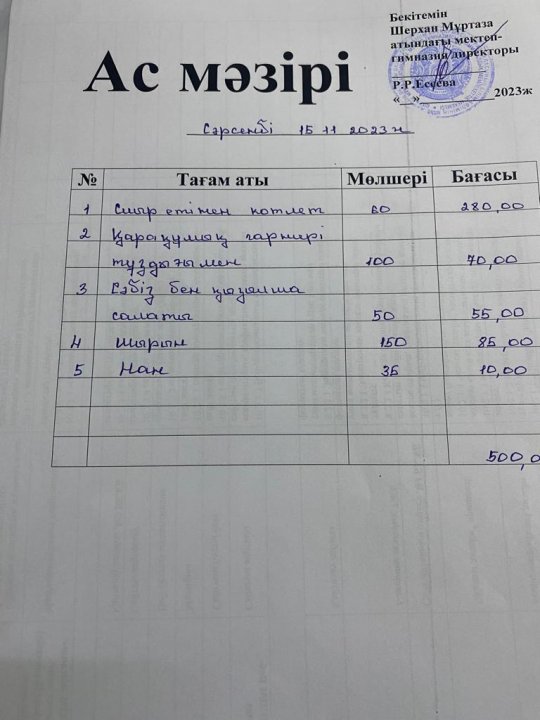 Бекітемін
Шерхан Мұртаза
атындағы мектеп-
гимназия директоры
Р.Р.Есеева
«__»__________2023ж
Ас мәзірі
Сәрсенбі 15 11 2023ж
№ Тағам аты Мөлшері Бағасы
1 Сиыр етінен котлет 60 280,00
2 Қарақұмық гарнирі
тұздығымен 100 70,00
3 Сәбіз бен қызылша
салаты 50 55,00
4 Шырын 150 85,00
5 Нан 35 10,00
500,0